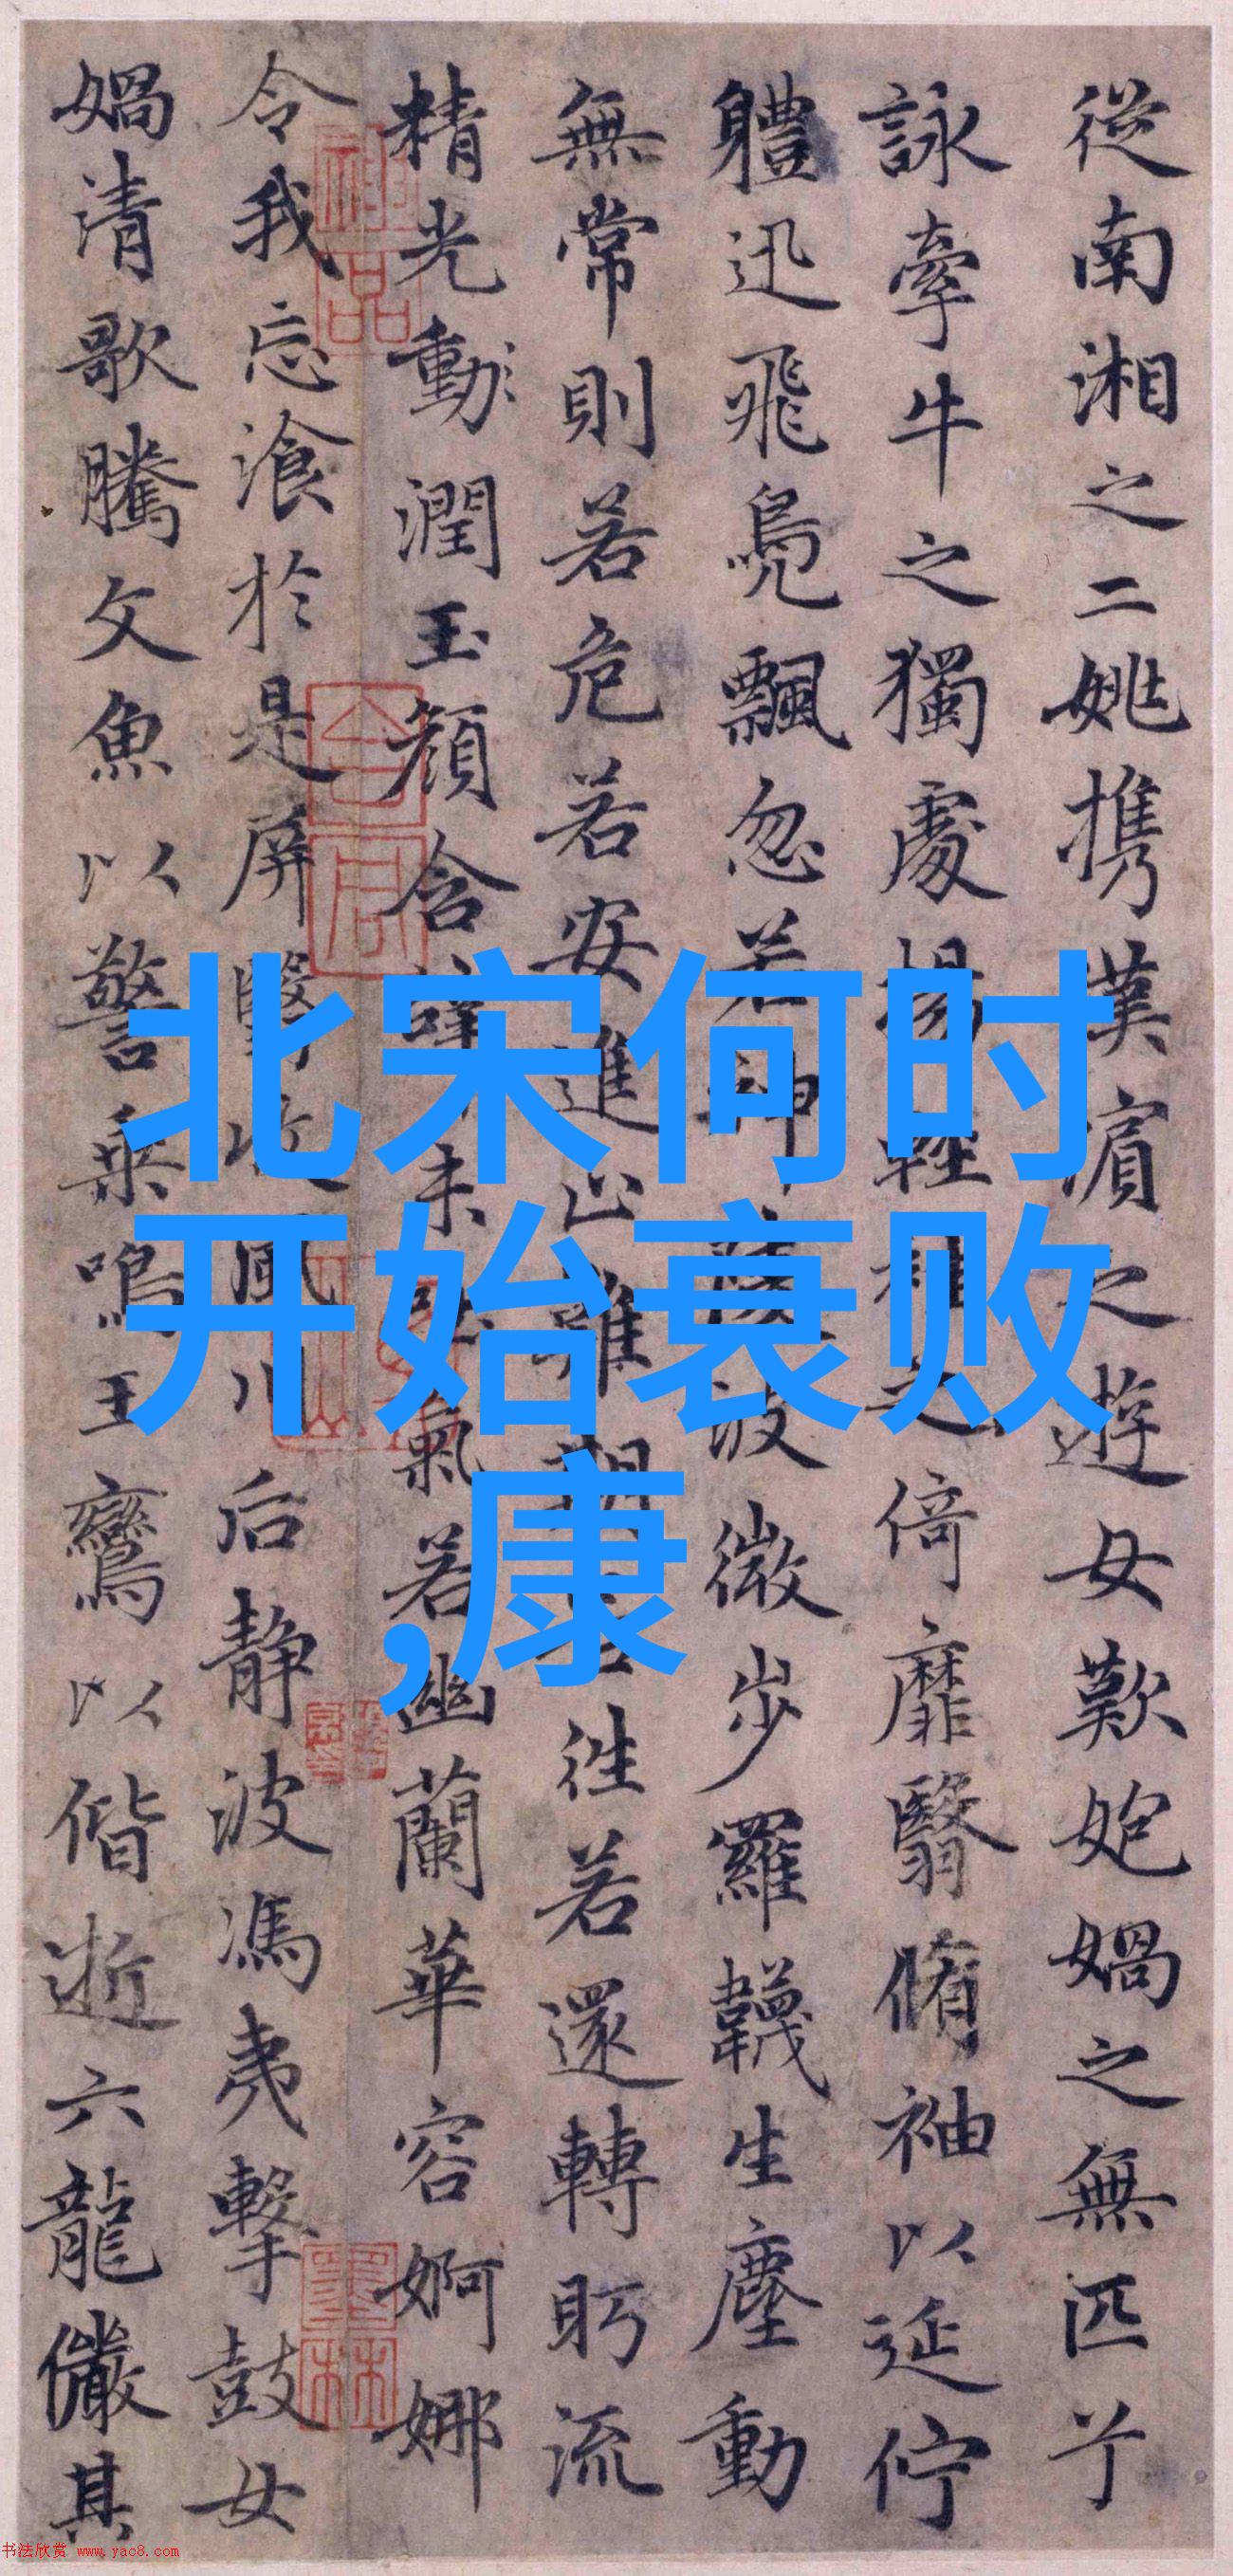 從南湘之二姚携漢濵之遊女歎匏媧之無匹兮
詠牽牛之獨處揚輕袿之倚靡翳脩袖以延佇
軆迅飛鳧飄忽若神陵波微步羅韈生塵動
無常則若危若安進止難期若往若還轉眄流
精光動潤玉顏含辭未吐氣若幽蘭華容婀娜
令我忘飡於是屏翳收風川后静波馮夷擊鼓女
媧清歌騰文魚以警乗鳴玉鸞以偕逝六龍儼其
北宋何时
开始衰败
,康
神品
墨林
书法欣赏 www.yac8.com